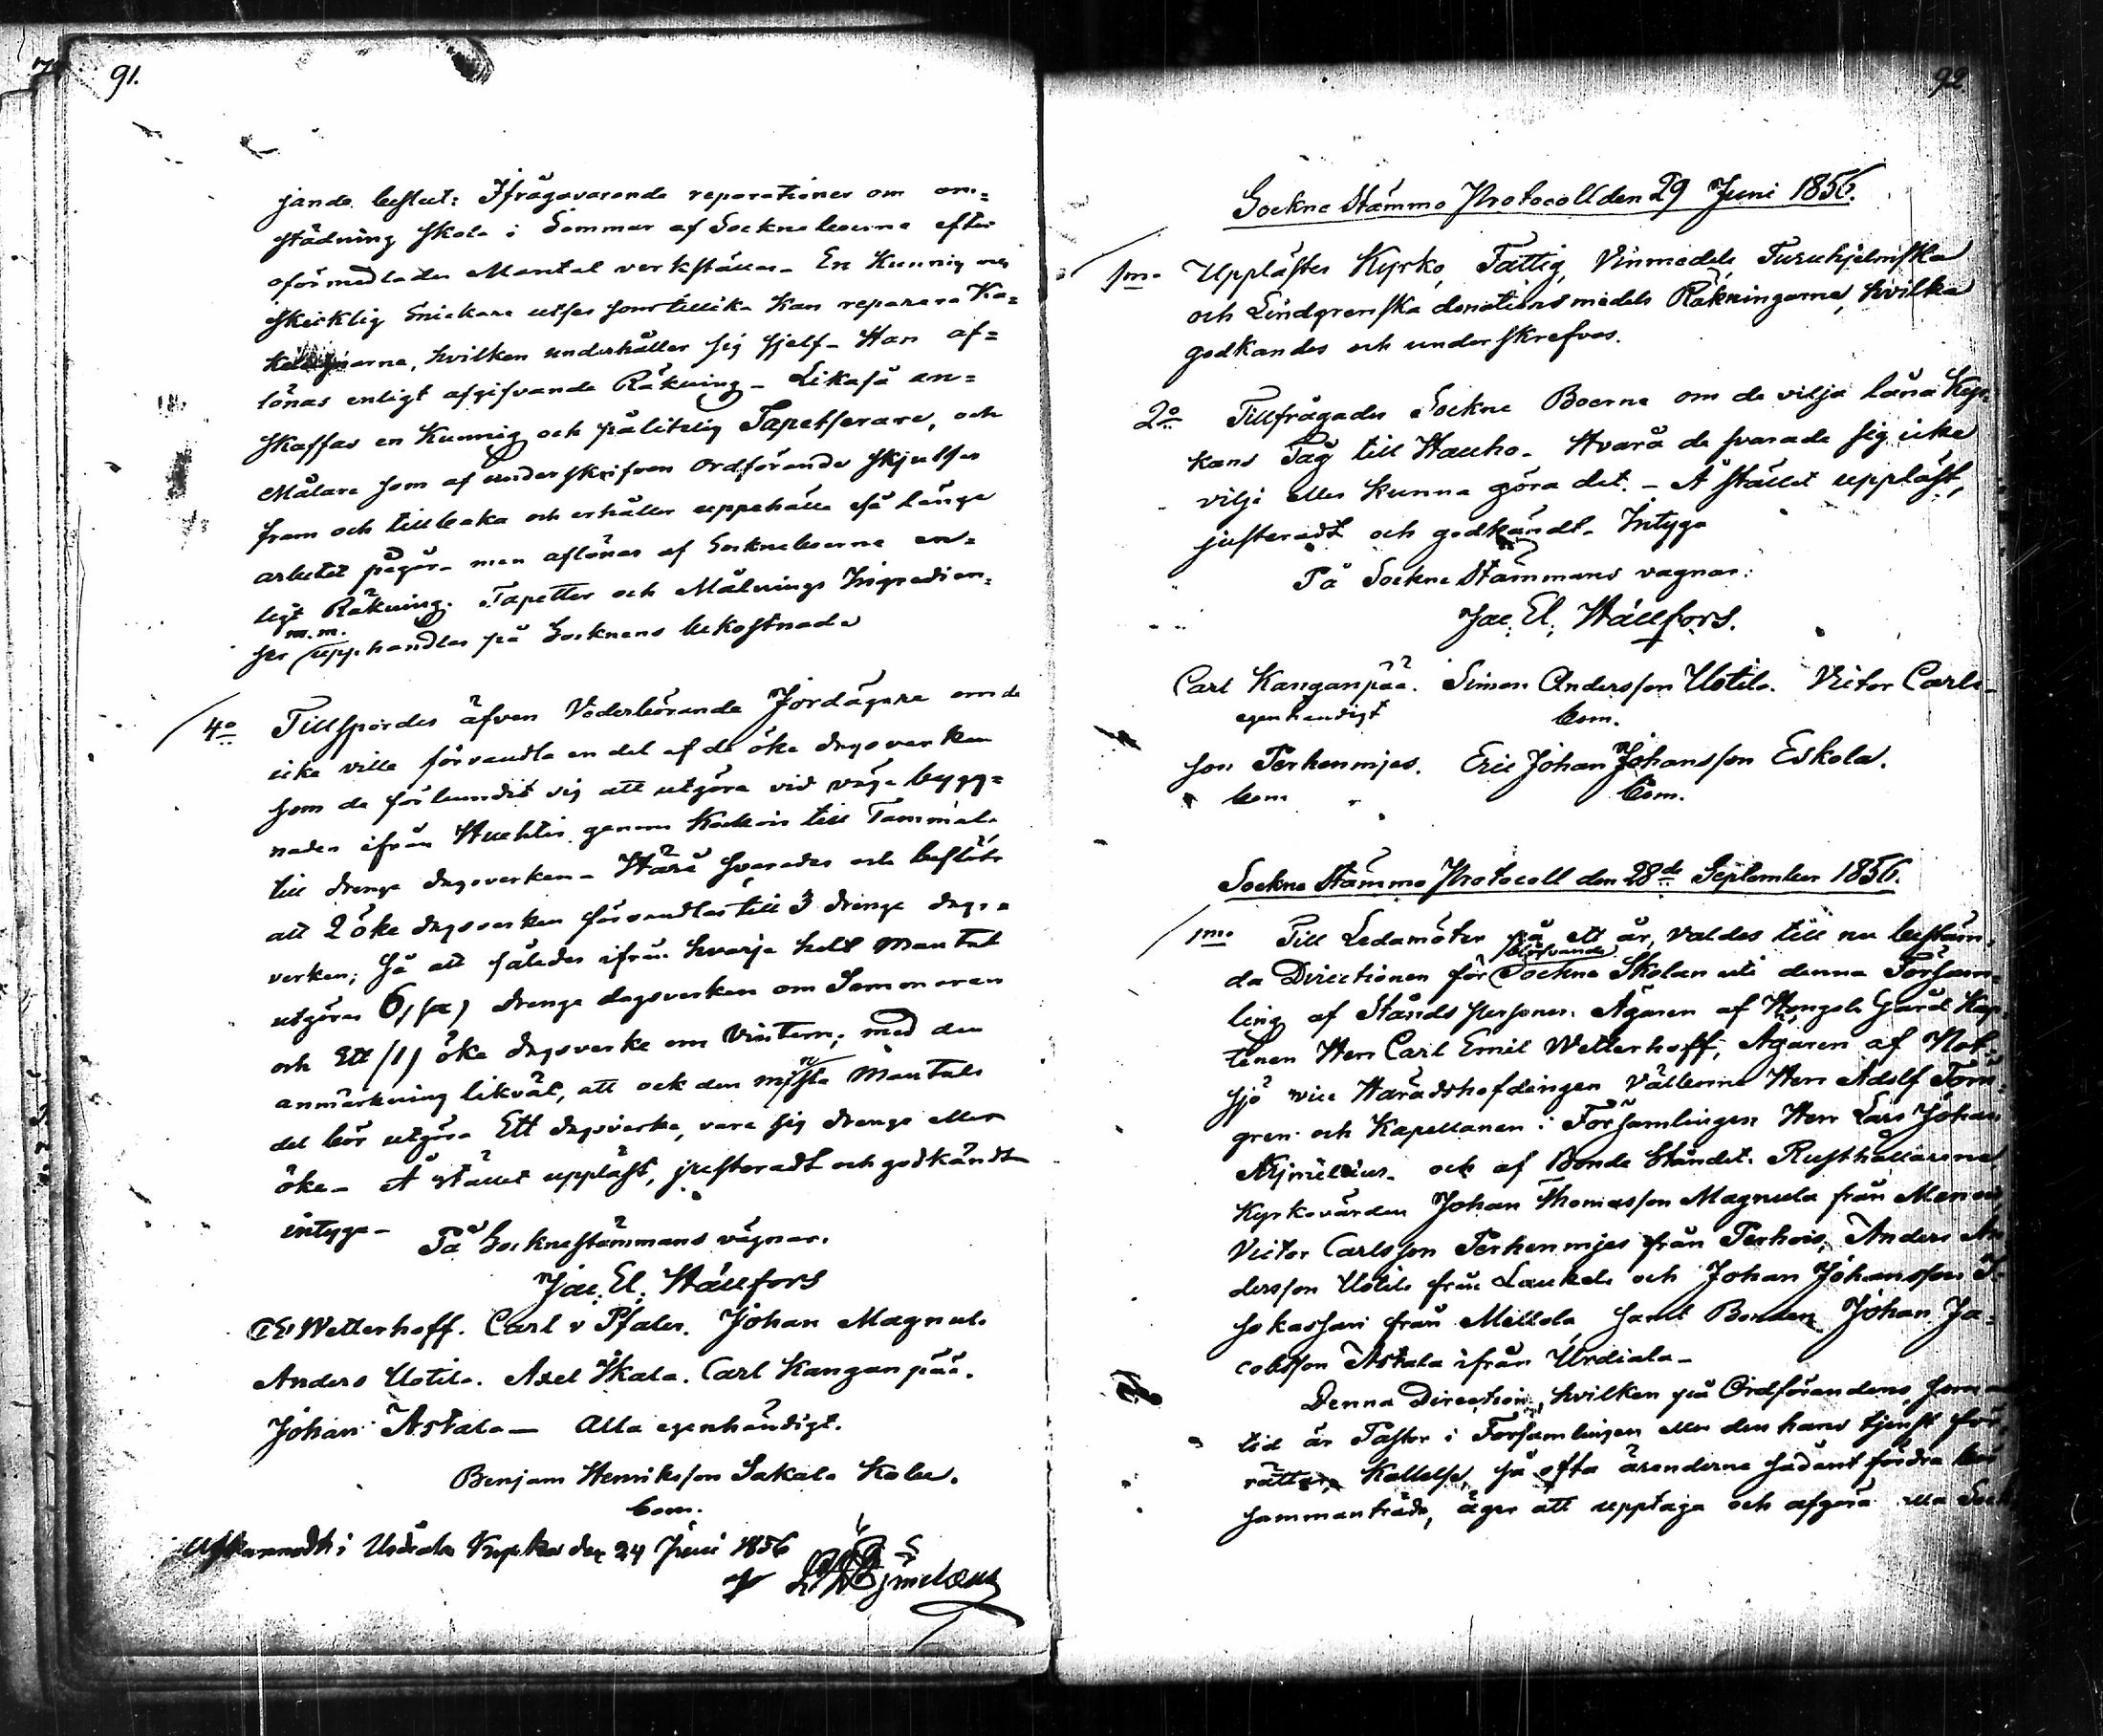 91.
jande beslut: Ifrågavarande reparationer om om=
städning skola i Sommar af Sockneboerna efter
oförmedlade Mantal verkställas. En Kunnig och
skicklig Snickare utses som tillika Kan reparera Ka=
kelugnarne, hvilken underhåller sig sjelf. Han af=
lönas enligt afgifvande Räkning. Likaså an=
skaffas en Kunnig och pålitelig Tapetserare, och
Målare som af underskrifven Ordförande skjutsas
fram och tillbaka och erhåller uppehälle så länge
arbetet pågår, men aflönas af Sockneboerne en=
ligt Räkning. Tapetter och Målnings Ingredien=
m.m.
ser upphandlas på Socknens bekostnad.
4o Tillspordes äfven Vederbörande Jordägare om de
icke ville förvandla en del af de öke dagsverken
som de förbundit sig att utgöra vid väge bygg=
naden ifrån Huhtis genom Kokois till Tammela
till drenge dagsverken. Härå svarades och beslöts
att 2 öke dagsverken förvandlas till 3 drenge dags=
verken; Så att således ifrån hvarje helt Mantal
utgöres 6, drenge dagsverken om Sommaren
och Ett /1/ öke dagsverke om Vintern; med den
anmärkning likväl, att ock den minsta Mantals
del bör utgöra Ett dagsverke, vare sig drenge eller
öke. Å stället uppläst, justeradt och godkändt
intyga.
På Socknestämmans vägnar.
Jac. El. Hällfors
CE Wetterhoff. Carl v Pfaler. Johan Magnula
Anders Uotila. Axel Skala. Carl Kanganpää.
Johan Astala — Alla egenhändigt.
Benjam Henriksson Sakala
bom.
Afkunnadt i Urdiala Kyrka den 24 Juni 1856
92.
Sockne Stämmo Protocoll den 29 Juni 1856.
1mo Upplästes Kyrko, Fattig, Vinmedels Furuhjelmska
och Lindgrenska donations medels Räkningarne, hvilka
godkändes och underskrefvos.
2o Tillfrågades Sockne Boerne om de vilja låna Kyr=
kans Tåg till Hauho. Hvarå de svarade sig icke
vilja eller kunna göra det. – Å stället uppläst,
justeradt och godkändt. Intyga
På Sockne Stämmans vagnar:
Jac. El. Hällfors.
Carl Kanganpää. Simon Andersson Uotila. Victor Carls=
egenhändigt bom.
son Perhenmjes. Eric Johan Johansson Eskola.
bom bom.
Sockne Stämmo Protocoll den 28de September 1856.
1mo Till Ledamöter på ett år, valdes till nu bestäm=
blifvande
da Directionen för Sockne Skolan uti denna Försam=
ling af Stånds personer. Ägaren af Hongola Gård Kap=
tenen Herr Carl Emil Wetterhoff, Ägaren af Not=
sjö vice Häradshöfdingen Vällborne Herr Adolf Törn=
gren och Kapellanen i Församlingen Herr Lars Johan
och af Bonde Ståndet. Rusthållarena
Kyrkovärden Johan Thomasson Magnula från
Victor Carlsson Perhenmjes från Perhois, Anders An=
dersson Uotila från Laukela och Johan Johansson
från Mellola samt Bonden Johan Ja=
cobsson Astala ifrån Urdiala.
Denna Direction, hvilken på Ordförandens, som
tid är Pastor i Församlingen eller den hans tjenst för=
rättar, Kallelse, så ofta ärenderne sådant fordra bör
sammanträda, äger att upptaga och afgöra